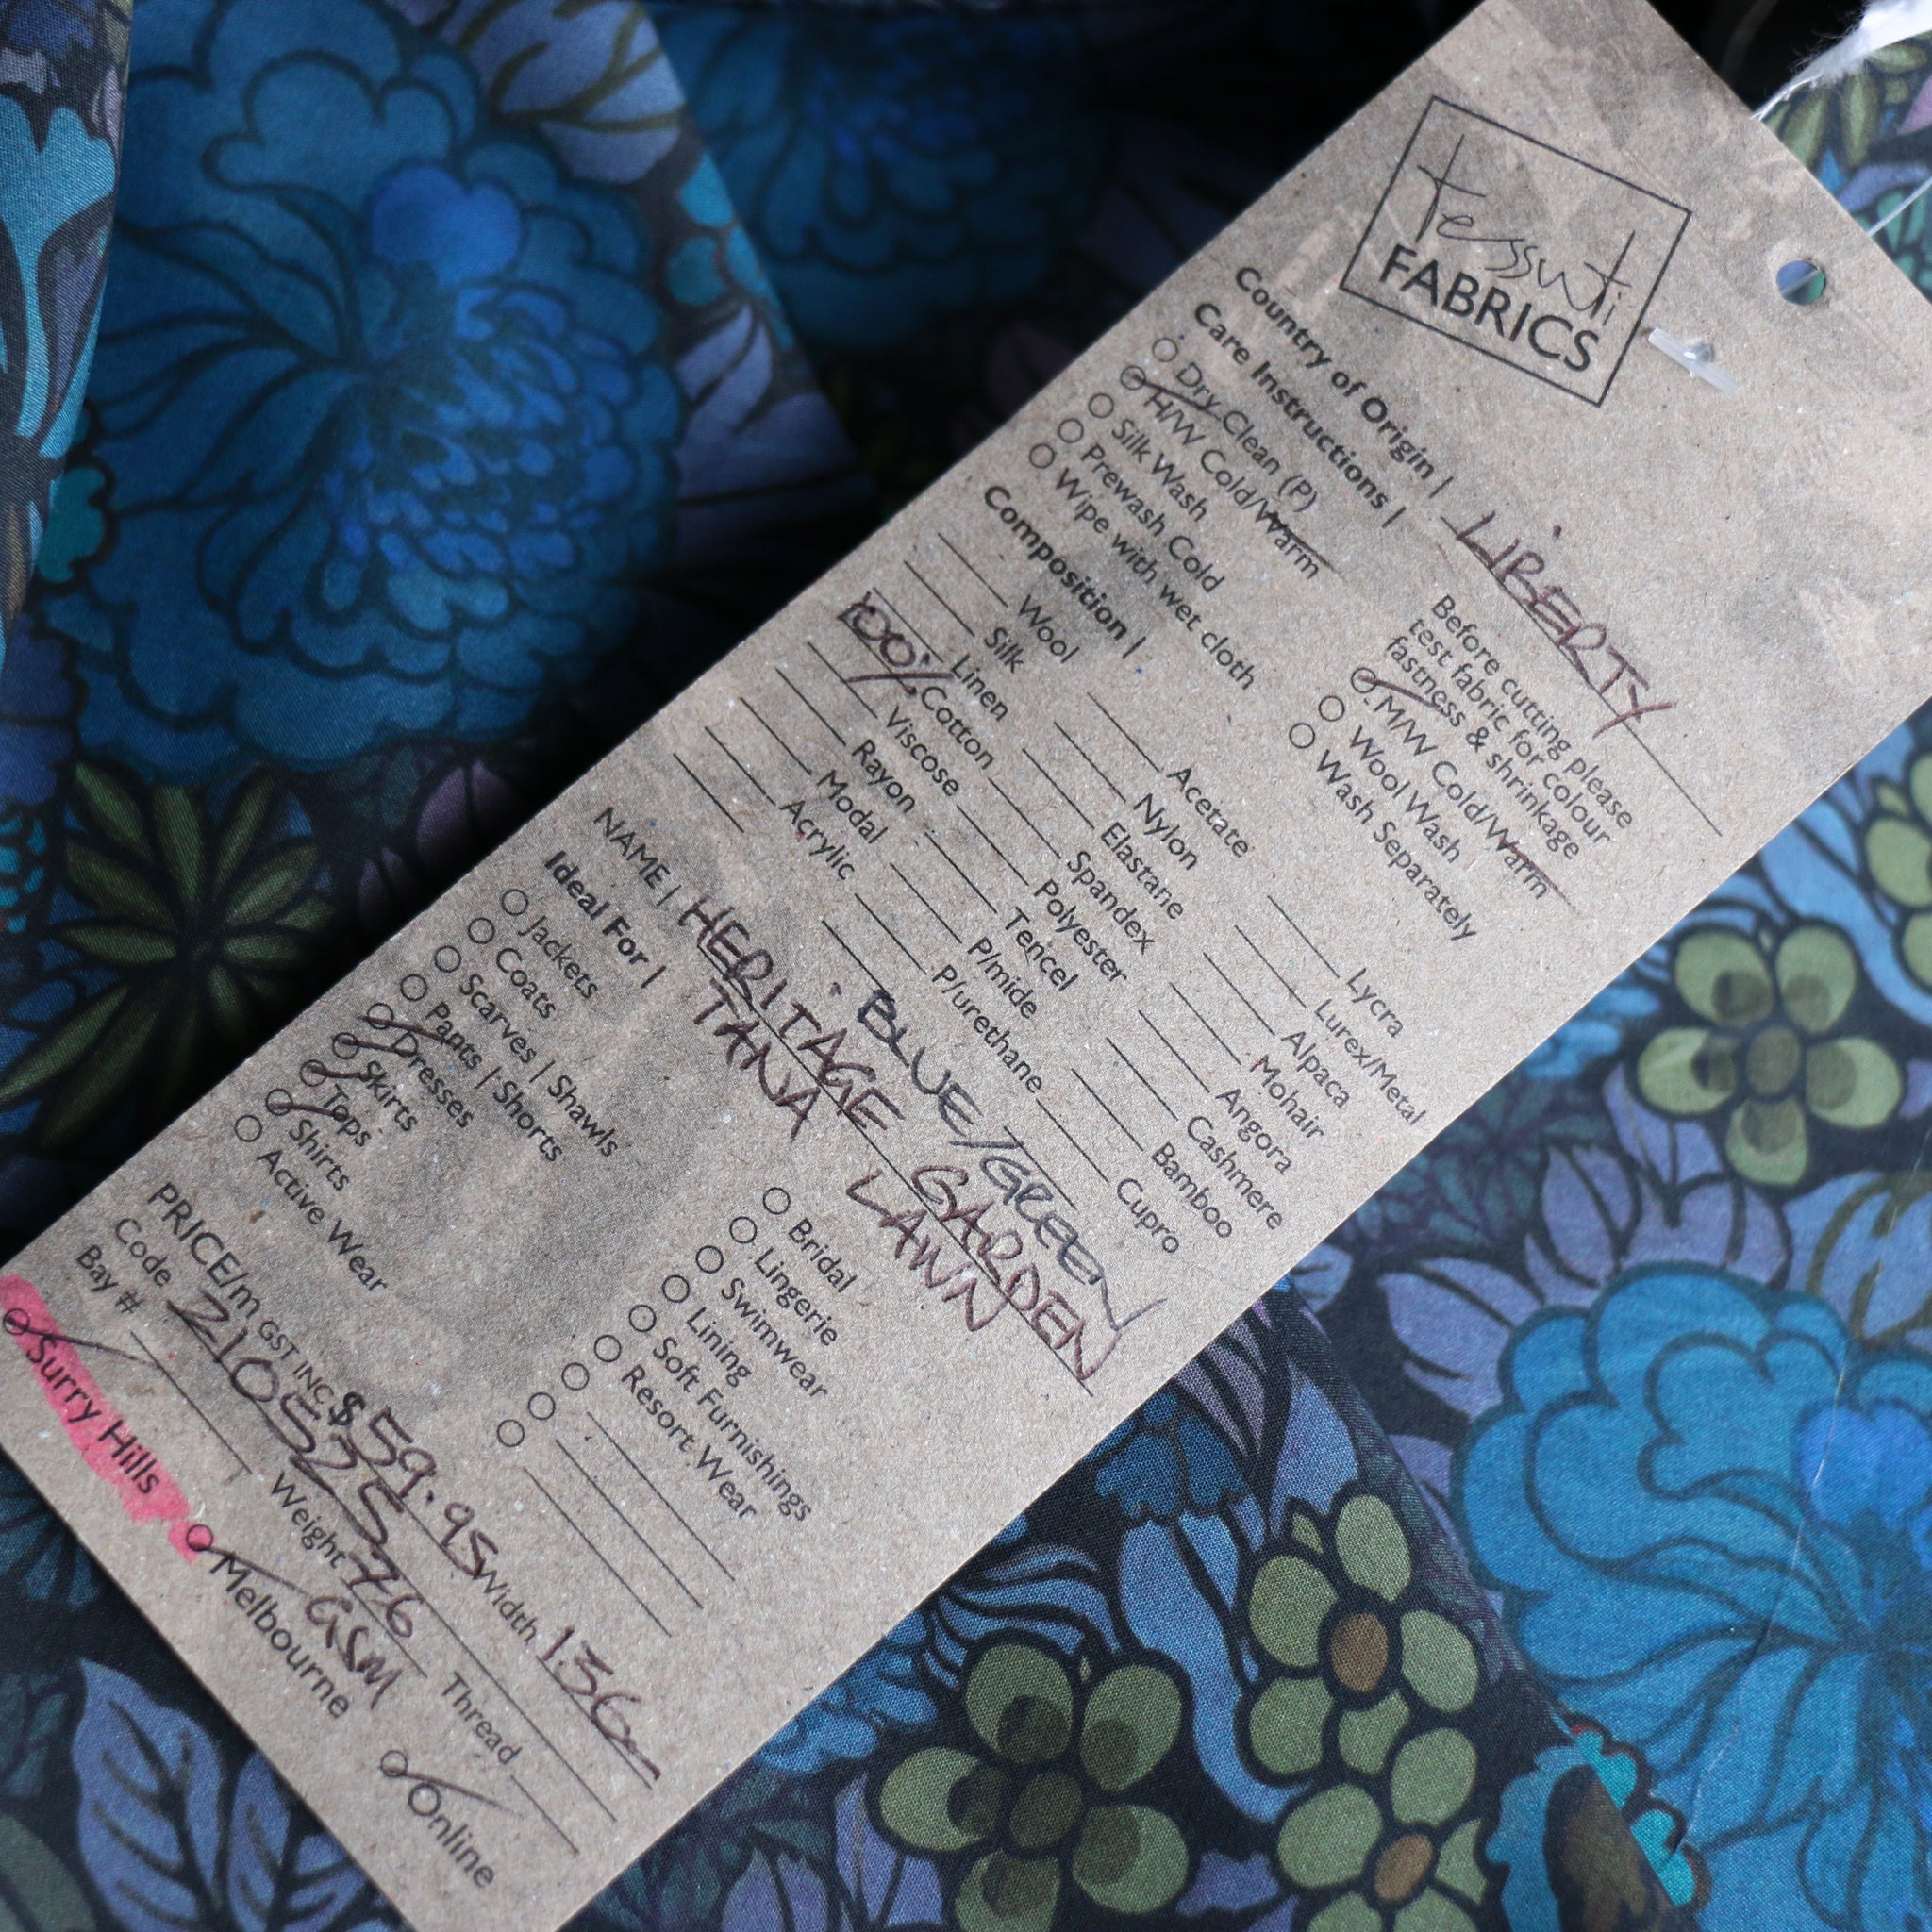 tessuti
FABRICS
Country of Origin | LIBERTY
Care Instructions |
Before cutting please
test fabric for colour
fastness & shrinkage
Dry Clean (P)
H/W Cold/Warm
Silk Wash
Prewash Cold
Wipe with wet cloth
M/W Cold/Warm
Wool Wash
Wash Separately
Composition |
Wool
Silk
Linen
100% Cotton
Viscose
Rayon
Modal
Acrylic
Acetate
Nylon
Elastane
Spandex
Polyester
Tencel
P/mide
P/urethane
Lycra
Lurex/Metal
Alpaca
Mohair
Angora
Cashmere
Bamboo
Cupro
BLUE/GREEN
NAME | HERITAGE GARDEN
TANA LAWN
Ideal For |
Jackets
Coats
Scarves | Shawls
Pants | Shorts
Dresses
Skirts
Tops
Shirts
Active Wear
Bridal
Lingerie
Swimwear
Lining
Soft Furnishings
Resort Wear
PRICE/m GST INC $59.95 Width 136
Code 210525
Bay # Weight 76 GSM Thread
Surry Hills Melbourne Online